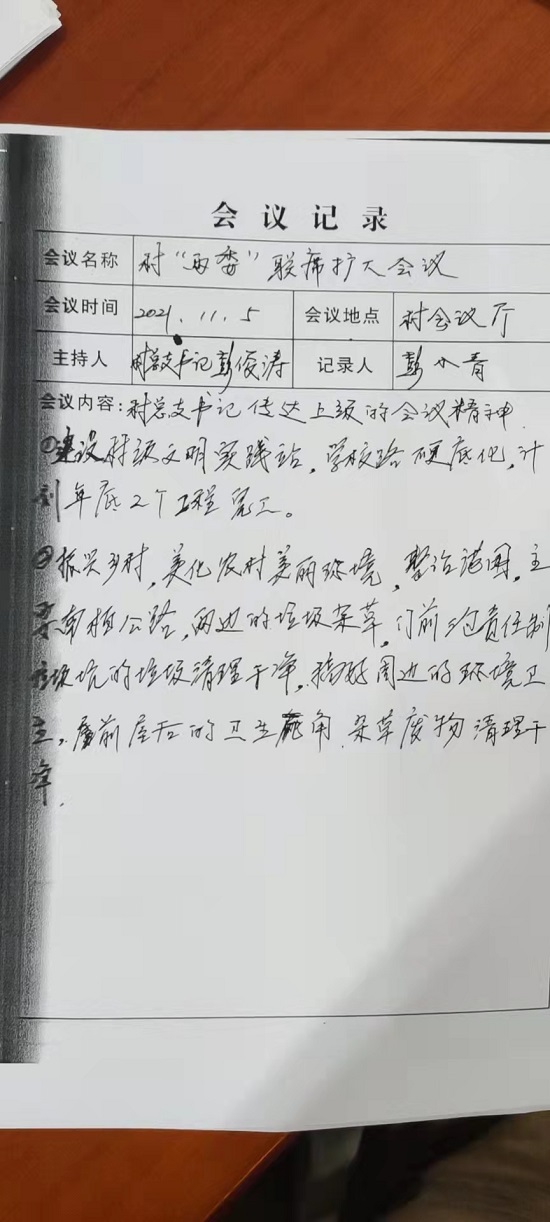 会议记录
会议名称 村“两委”联席扩大会议
会议时间 2021.11.5 会议地点 村会议厅
主持人 村总支书记彭俊涛 记录人 彭水青
会议内容:村总支书记传达上级的会议精神.
①建设村级文明实践站,学校路硬底化,计
划年底2个工程完工。
②振兴乡村,美化农村美丽环境,整治范围,主
要 公路,两边的垃圾杂草,门前三包责任制
垃圾坑的垃圾清理干净,搞好周边的环境卫
生。屋前屋后的卫生死角.杂草废物清理干
净.